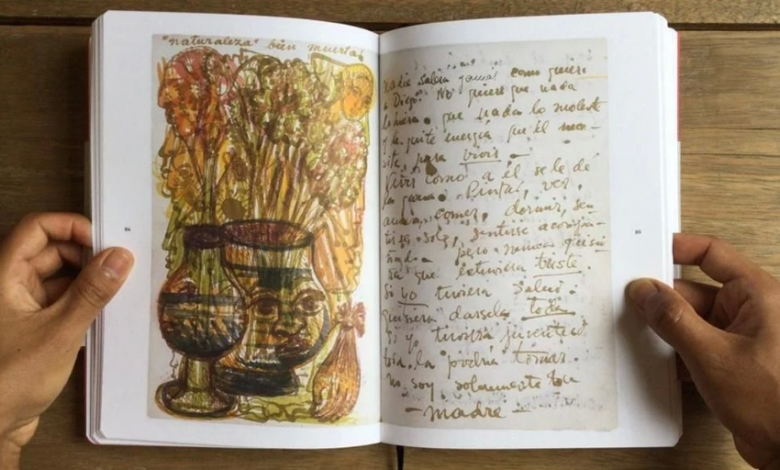 "naturaleza" bien muerta!
nadie sabrá jamás como quiero
a Diego. No quiero que nada
lo hiera. que nada lo moleste
y le quite energía que él nece-
sita para vivir –
Vivir como a él se le dé
la gana. Pintar, ver,
amar, comer, dormir, sen-
tirse solo, sentirse acompa-
ñado – pero nunca quisie
ra que estuviera triste.
si yo tuviera salud
quisiera darsela toda
si yo tuviera juventud
toda la podria tomar.
no soy solamente tu
– madre –